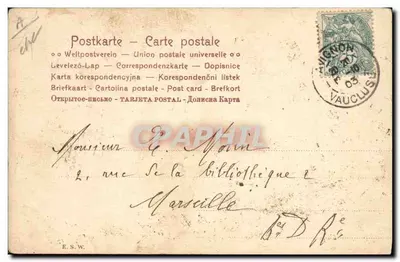 Postkarte — Carte postale
Weltpostverein — Unione postale universelle
Levelező-Lap — Correspondenzkarte — Dopisnice
Karta korespondencyjna — Korespondenční lístek
Briefkaart — Cartolina postale — Post card — Brefkort
Открытое письмо — TARJETA POSTAL — Дописна Карта
AVIGNON
VAUCLUSE
Monsieur E Moun
2, rue de la bibliothèque 2
Marseille
Bes D Re
E. S. W.
CPAPHIL